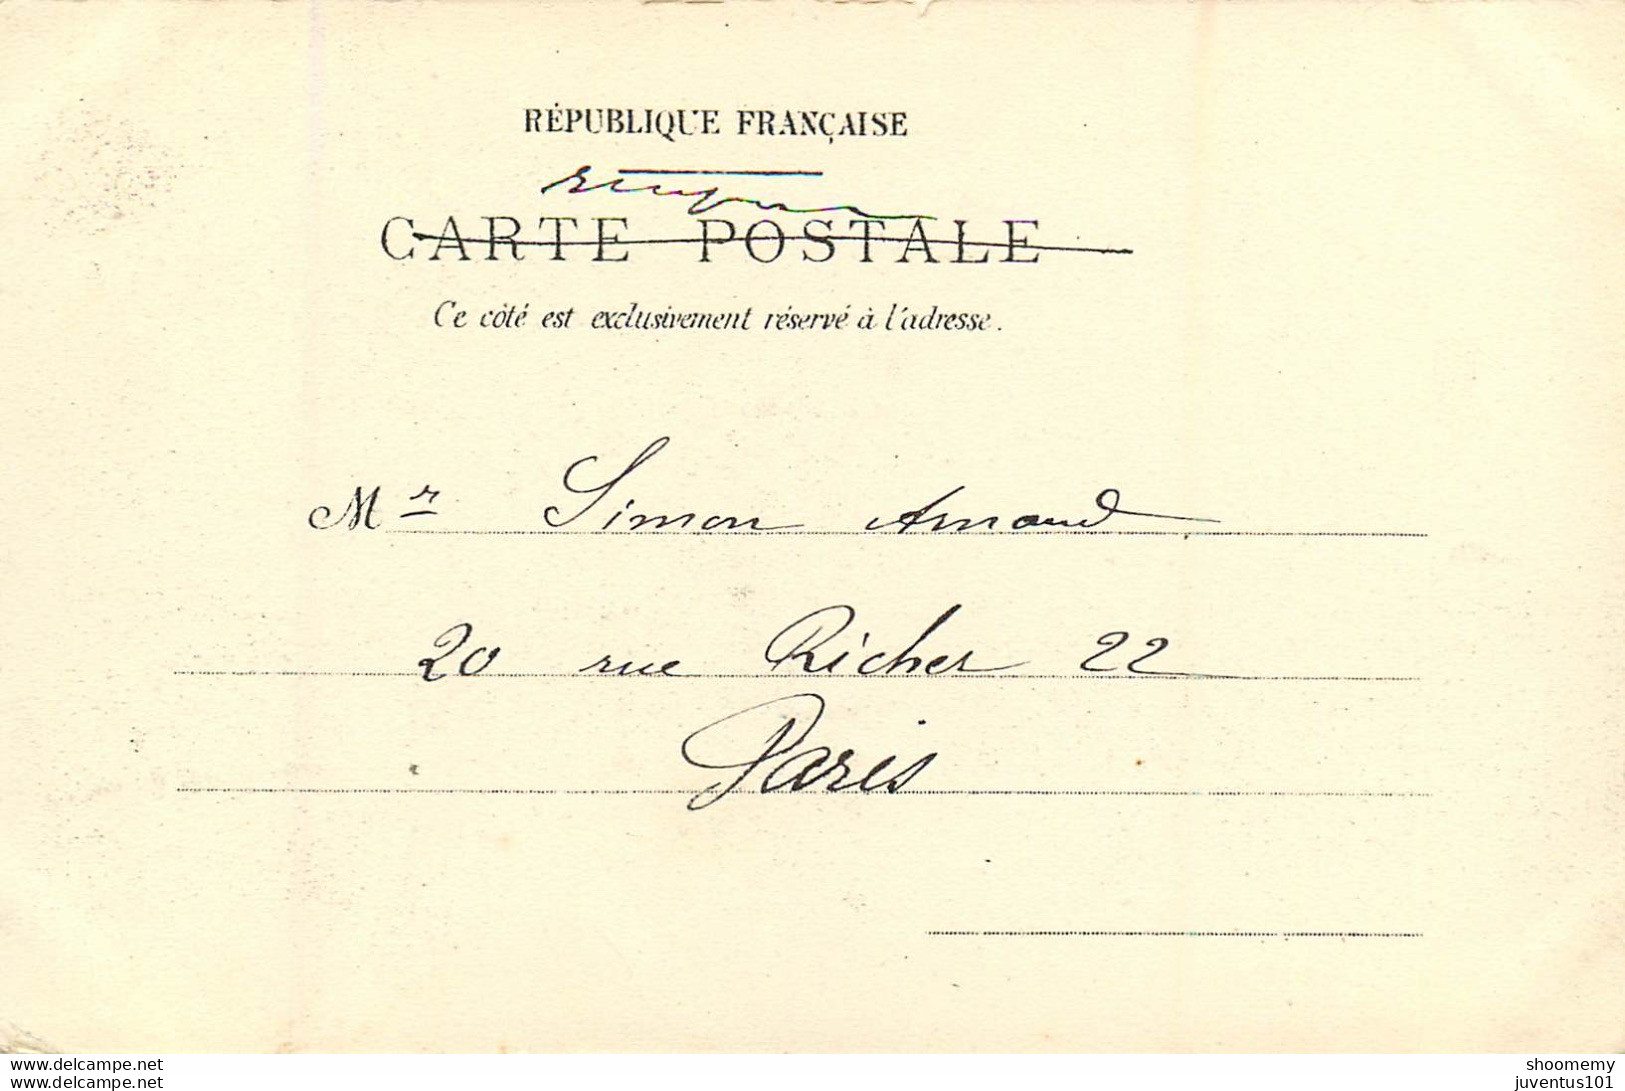 RÉPUBLIQUE FRANÇAISE
CARTE POSTALE
Ce côté est exclusivement réservé à l'adresse.
Mr Simon Arnaud
20 rue Richer 22
Paris
www.delcampe.net shoomemy
www.delcampe.net juventus101